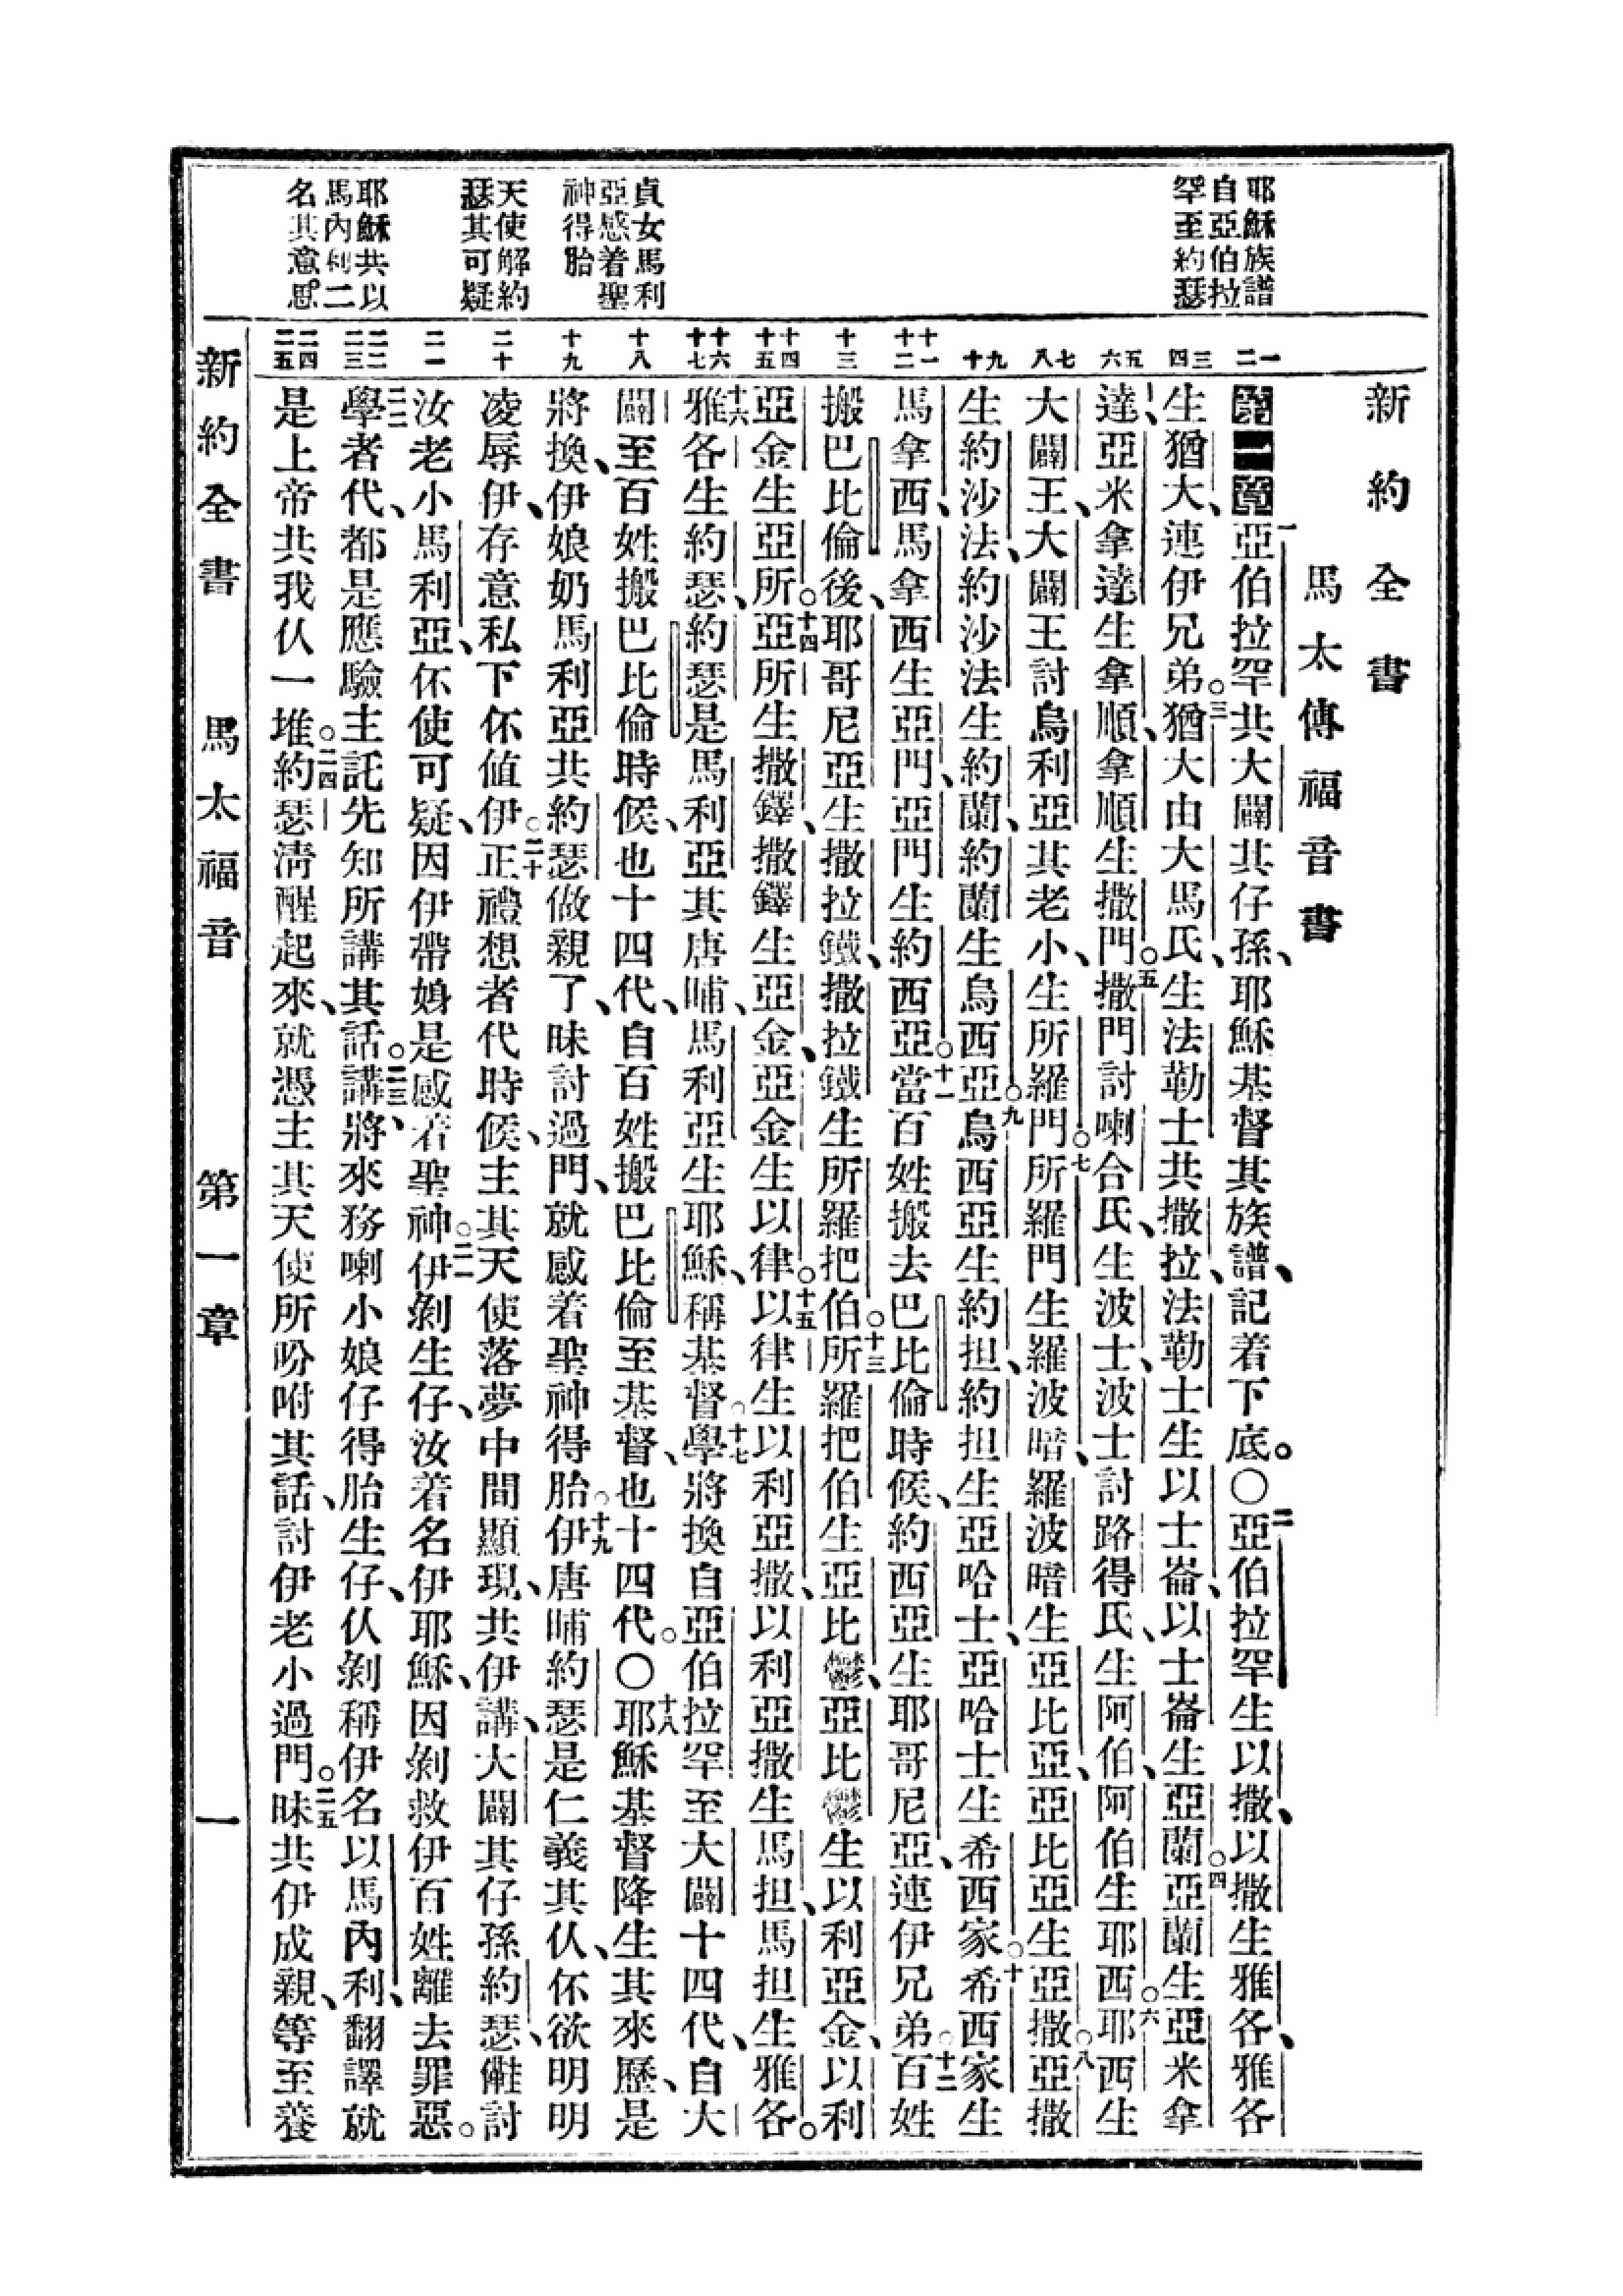 新約全書
馬太傳福音書
耶穌族譜
自亞伯拉
罕至約瑟
貞女馬利
亞感着聖
神得胎
天使解約
瑟其可疑
耶穌共以
馬內利二
名其意思。
一 二 三 四 五 六 七 八 九 十 十一 十二 十三 十四 十五 十六 十七 十八 十九 二十 二一 二二 二三 二四 二五
第一章 一亞伯拉罕共大闢其仔孫、耶穌基督其族譜、記着下底。○二亞伯拉罕生以撒、以撒生雅各、雅各
生猶大、連伊兄弟。三猶大由大馬氏、生法勒士共撒拉、法勒士生以士崙、以士崙生亞蘭。四亞蘭生亞米拿
達、亞米拿達生拿順、拿順生撒門。五撒門討喇合氏、生波士、波士討路得氏、生阿伯、阿伯生耶西。六耶西生
大闢王、大闢王討烏利亞其老小、生所羅門。七所羅門生羅波暗、羅波暗生亞比亞、亞比亞生亞撒。八亞撒
生約沙法、約沙法生約蘭、約蘭生烏西亞。九烏西亞生約担、約担生亞哈士、亞哈士生希西家。十希西家生
馬拿西、馬拿西生亞門、亞門生約西亞。十一當百姓搬去巴比倫時候、約西亞生耶哥尼亞、連伊兄弟。十二百姓
搬巴比倫後、耶哥尼亞生撒拉鐵、撒拉鐵生所羅把伯。十三所羅把伯生亞比鬱、亞比鬱生以利亞金、以利
亞金生亞所。十四亞所生撒鐸、撒鐸生亞金、亞金生以律。十五以律生以利亞撒、以利亞撒生馬担、馬担生雅各。
十六雅各生約瑟、約瑟是馬利亞其唐晡、馬利亞生耶穌、稱基督。十七學將換自亞伯拉罕至大闢十四代、自大
闢至百姓搬巴比倫時候、也十四代、自百姓搬巴比倫至基督、也十四代。○十八耶穌基督降生其來歷、是
將換、伊娘奶馬利亞共約瑟做親了、昧討過門、就感着聖神得胎。十九伊唐晡約瑟是仁義其仈、伓欲明明
凌辱伊、存意私下伓值伊。二十正禮想者代時候、主其天使落夢中間顯現、共伊講、大闢其仔孫約瑟、討
汝老小馬利亞、伓使可疑、因伊帶娠是感着聖神。二一伊剝生仔、汝着名伊耶穌、因剝救伊百姓離去罪惡。
二二學者代、都是應驗主託先知所講其話。二三講、將來務喇小娘仔得胎生仔、仈剝稱伊名以馬內利、翻譯就
是上帝共我仈一堆。二四約瑟淸醒起來、就憑主其天使所吩咐其話、討伊老小過門。二五昧共伊成親、等至養
新約全書 馬太福音 第一章 一